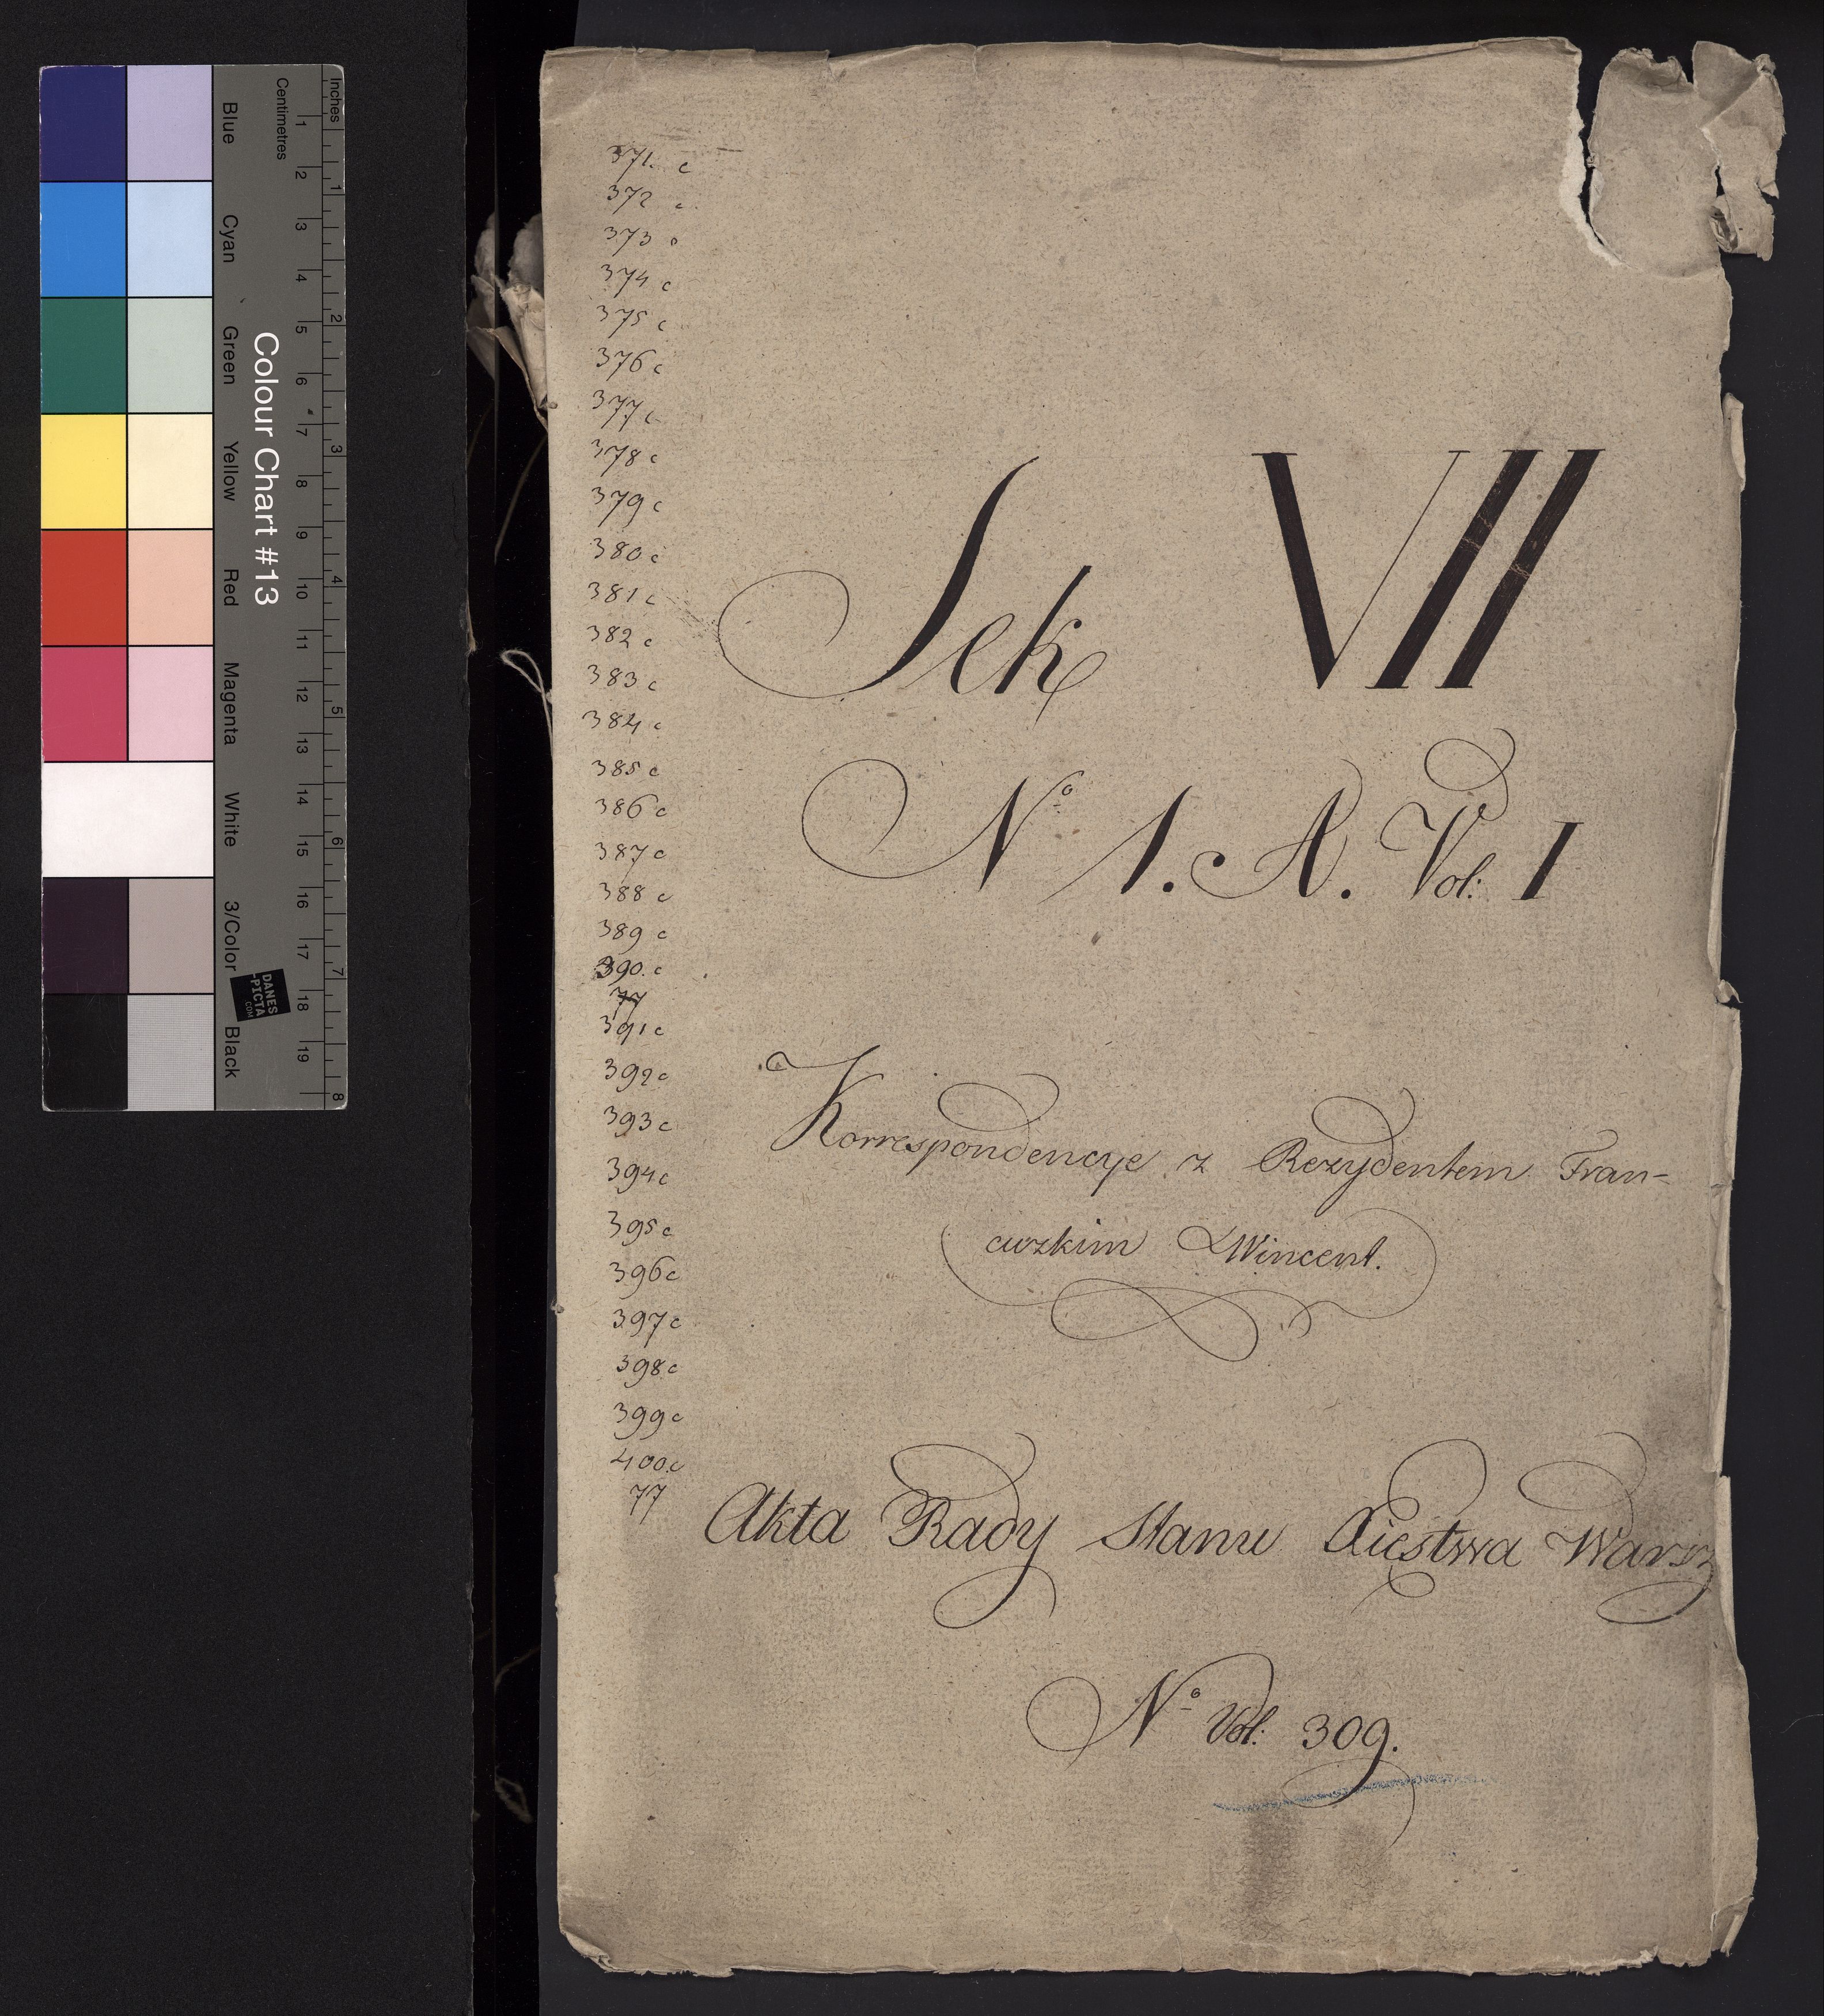 Inches
Centimetres
1 2 3 4 5 6 7 8 9 10 11 12 13 14 15 16 17 18 19
1 2 3 4 5 6 7 8
Blue Cyan Green Yellow Red Magenta White 3/Color Black
Colour Chart #13
DANES
-PICTA
.COM
371. c
372 c
373 c
374 c
375 c
376 c
377 c
378 c
379 c
380 c
381 c
382 c
383 c
384 c
385 c
386 c
387 c
388 c
389 c
390. c
77
391 c
392 c
393 c
394 c
395 c
396 c
397 c
398 c
399 c
400. c
77
Sek VII
No 1. A. Vol: I
Korrespondencye z Rezydentem Fran-
cuzkim Wincent.
Akta Rady Stanu Xięstwa Warsz
No Vol: 309.